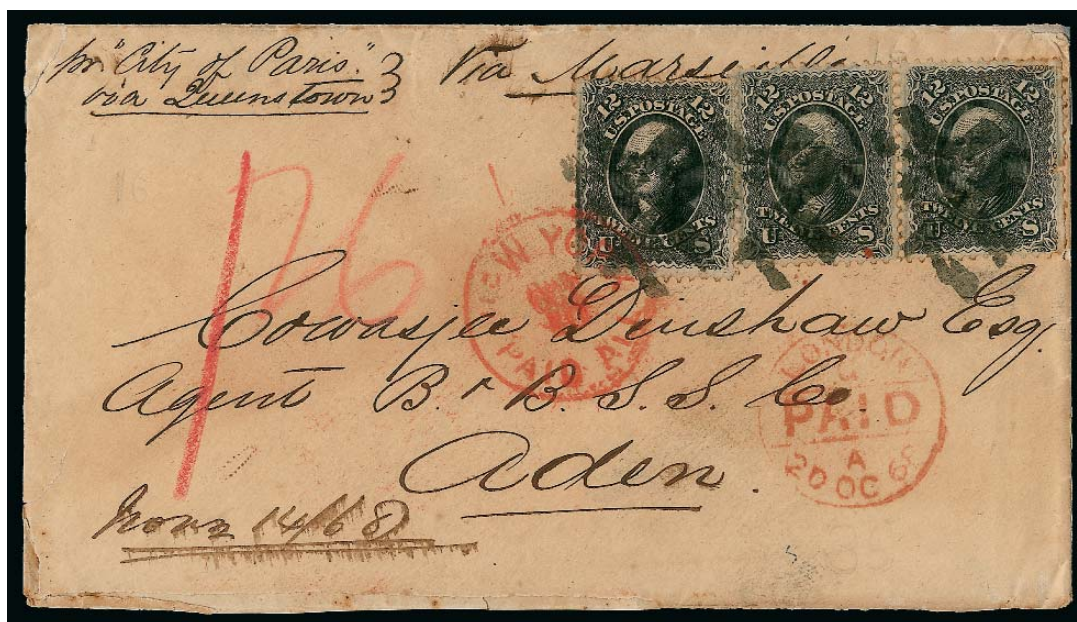 pr "City of Paris"
via Queenstown
Via Marseille
12 12
U.S. POSTAGE
TWELVE CENTS
U S
12 12
U.S. POSTAGE
TWELVE CENTS
U S
12 12
U.S. POSTAGE
TWELVE CENTS
U S
NEW YORK
PAID ALL
Cowasjee Dinshaw Esq.
Agent B. & B. S. S. Co.
Aden.
LONDON
PAID
A
20 OC 68